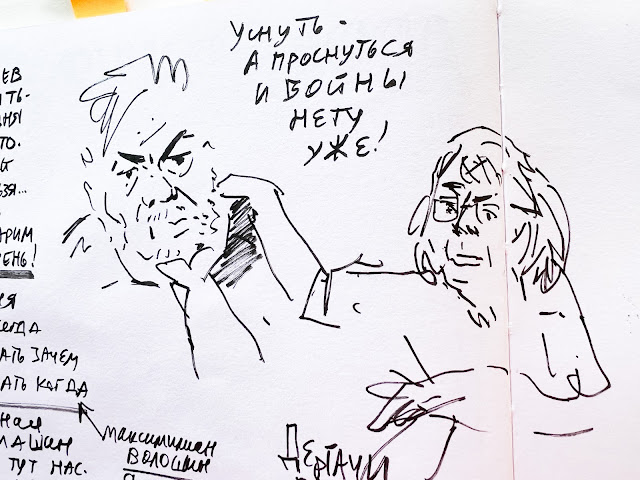 УСНУТЬ -
А ПРОСНУТЬСЯ
И ВОЙНЫ
НЕТУ
УЖЕ!
ЕВ
ТЬ-
НЯ
ТО.
ЗЯ...
АРИМ
ЕНЬ!
ГДА
АТЬ ЗАЧЕМ
АТЬ КОГДА
НАМ
ЛАШИН
ТУТ НАС.
МАКСИМИЛИАН
ВОЛОШИН
ДЕРГАЧИ